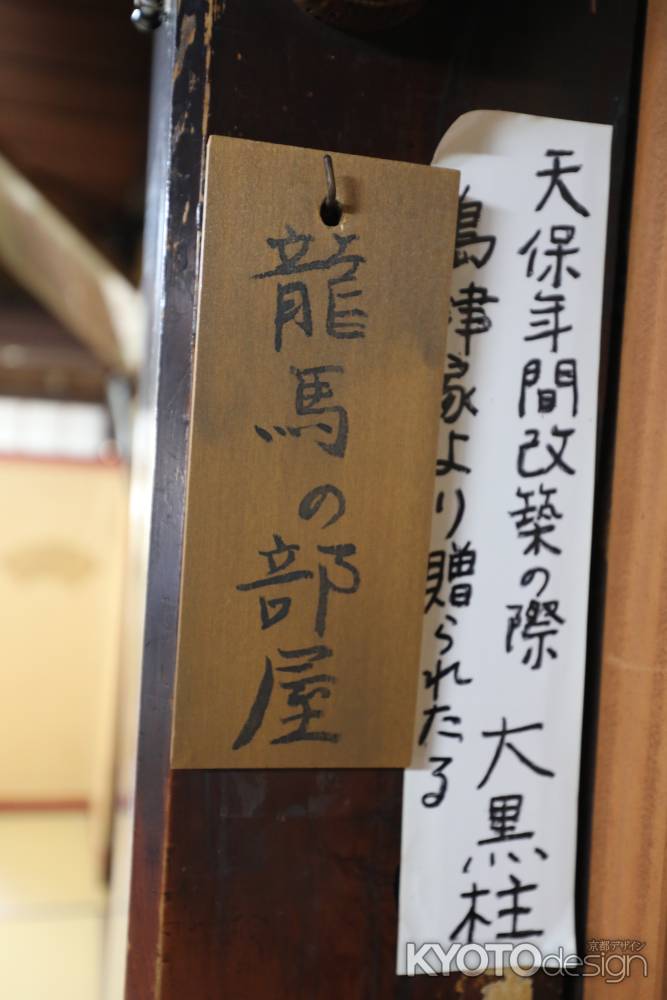 天保年間改築の際
島津家より贈られたる
大黒柱
龍馬の部屋
京都デザイン
KYOTOdesign